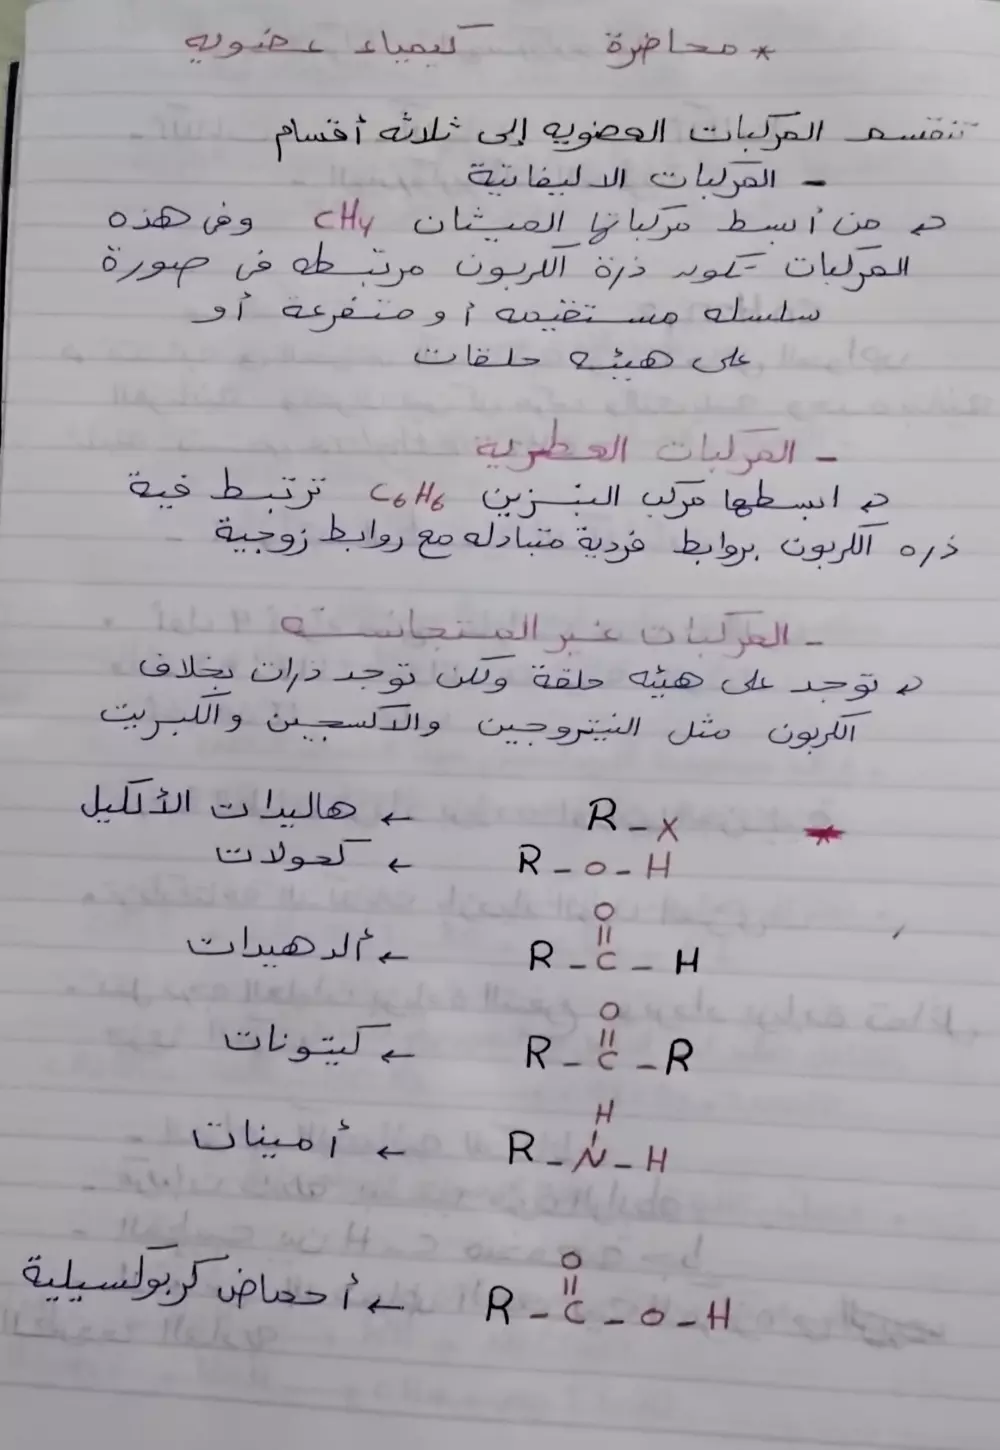 * محاضرة كيمياء عضويه
تنقسم المركبات العضويه إلى ثلاثه أقسام
- المركبات الاليفاتية
من أبسط مركباتها الميثان CH4 وفى هذه
المركبات تكون ذرة الكربون مرتبطه فى صورة
سلسله مستقيمه أو متفرعة أو
على هيئه حلقات
- المركبات العطرية
ابسطها مركب البنزين C6H6 ترتبط فية
ذره الكربون بروابط فردية متبادله مع روابط زوجية
- المركبات غير المتجانسه
توجد على هيئه حلقة ولكن توجد ذرات بخلاف
الكربون مثل النيتروجين والاكسجين والكبريت
* R-X ← هاليدات الألكيل
R-O-H ← كحولات
O
||
R-C-H ← ألدهيدات
O
||
R-C-R ← كيتونات
H
R-N-H ← أمينات
O
||
R-C-O-H ← أحماض كربوكسيلية